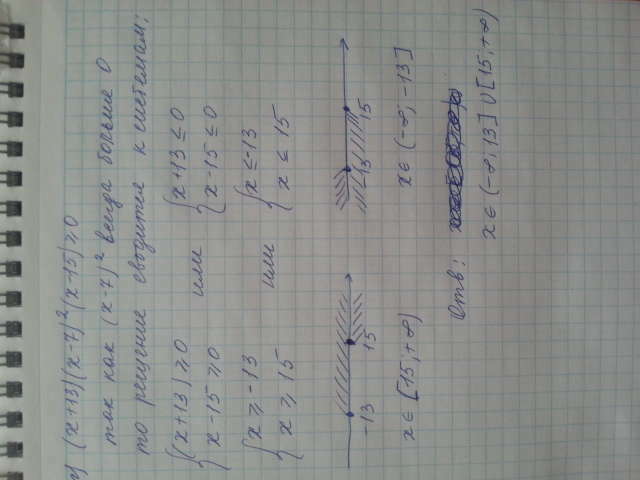 г) (x+13)(x-7)²(x-15)≥0
так как (x-7)² всегда больше 0
то решение сводится к системам:
{(x+13)≥0 или {x+13≤0
{x-15≥0 {x-15≤0
{x≥-13 или {x≤-13
{x≥15 {x≤15
-13 15 -13 15
x∈[15;+∞) x∈(-∞;-13]
Отв:
x∈(-∞;13]∪[15;+∞)